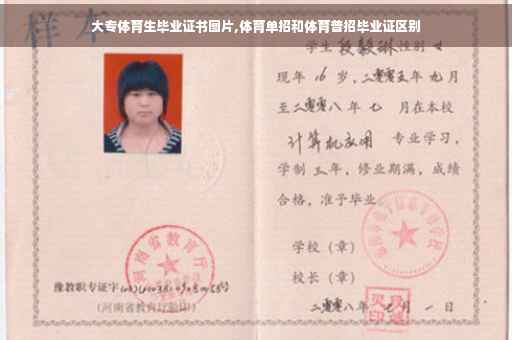 大专体育生毕业证书图片,体育单招和体育普招毕业证区别
样本
学生 段毅琳 性别 女
现年 16 岁，二零零五年 九月
至二零零八年 七 月在本校
计算机应用 专业学习，
学制 三 年，修业期满，成绩
合格，准予毕业
学校（章）
校长（章）
河南省教育厅
豫教职专证字
（河南省教育厅验印）
二零零八年 月 一 日